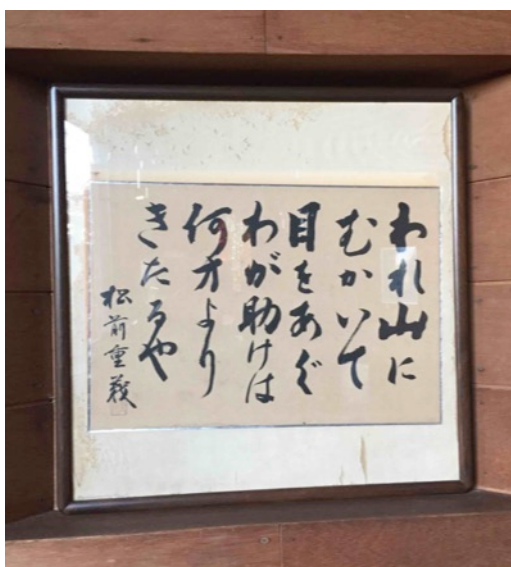 われ山に
むかいて
目をあぐ
わが助けは
何方より
きたるや
松前重義